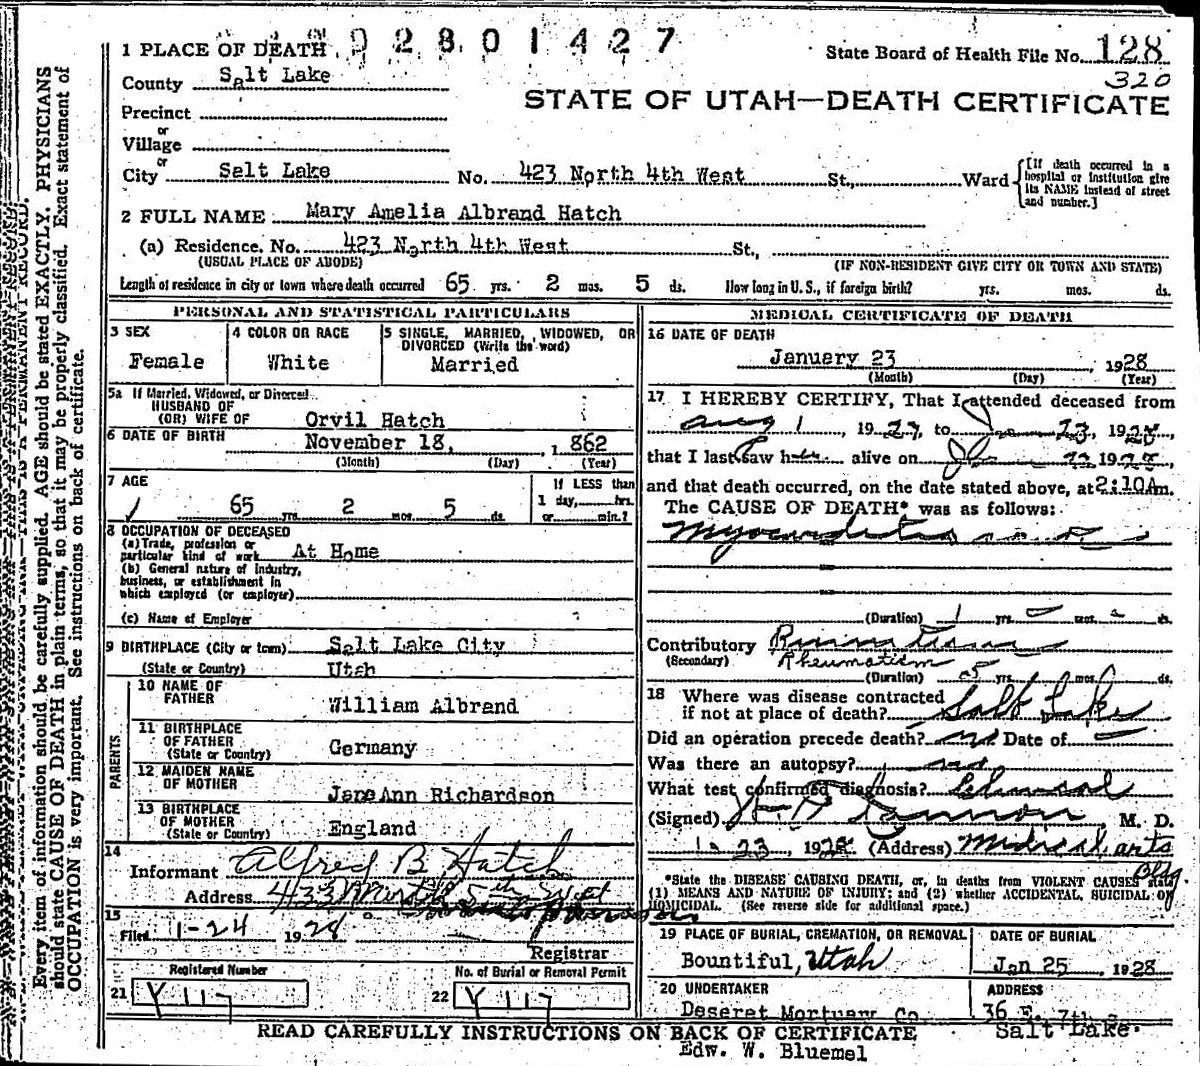 02801427
1 PLACE OF DEATH
State Board of Health File No. 128
320
County Salt Lake
STATE OF UTAH—DEATH CERTIFICATE
Precinct
or
Village
or
City Salt Lake No. 423 North 4th West St., Ward
[If death occurred in a hospital or institution give its NAME instead of street and number.]
2 FULL NAME Mary Amelia Albrand Hatch
(a) Residence. No. 423 North 4th West St.,
(USUAL PLACE OF ABODE) (IF NON-RESIDENT GIVE CITY OR TOWN AND STATE)
Length of residence in city or town where death occurred 65 yrs. 2 mos. 5 ds. How long in U.S., if foreign birth? yrs. mos. ds.
PERSONAL AND STATISTICAL PARTICULARS
3 SEX
Female
4 COLOR OR RACE
White
5 SINGLE, MARRIED, WIDOWED, OR
DIVORCED (Write the word)
Married
5a If Married, Widowed, or Divorced
HUSBAND OF
(OR) WIFE OF Orvil Hatch
6 DATE OF BIRTH November 18, 1862
(Month) (Day) (Year)
7 AGE
65 yrs 2 mos 5 ds.
If LESS than
1 day, hrs.
or min.?
8 OCCUPATION OF DECEASED
(a) Trade, profession or
particular kind of work At Home
(b) General nature of industry,
business, or establishment in
which employed (or employer)
(c) Name of Employer
9 BIRTHPLACE (City or town) Salt Lake City
(State or Country) Utah
PARENTS
10 NAME OF
FATHER William Albrand
11 BIRTHPLACE
OF FATHER
(State or Country) Germany
12 MAIDEN NAME
OF MOTHER Jane Ann Richardson
13 BIRTHPLACE
OF MOTHER
(State or Country) England
14
Informant Alfred B Hatch
Address 433 North 5th West
15
Filed 1-24 1928
Registrar
Registered Number
21 Y 117
No. of Burial or Removal Permit
22 Y 117
MEDICAL CERTIFICATE OF DEATH
16 DATE OF DEATH
January 23, 1928
(Month) (Day) (Year)
17 I HEREBY CERTIFY, That I attended deceased from
Aug 1, 1927, to Jan 23, 1928,
that I last saw her alive on Jan 22 1928,
and that death occurred, on the date stated above, at 2:10 A m.
The CAUSE OF DEATH* was as follows:
Myocarditis
(Duration) 1 yrs. mos. ds.
Contributory
(Secondary) Rheumatism
(Duration) 5 yrs. mos. ds.
18 Where was disease contracted
if not at place of death? Salt Lake
Did an operation precede death? no Date of
Was there an autopsy? no
What test confirmed diagnosis? Clinical
(Signed) M. D.
1-23, 1928 (Address) Medical Arts
Bldg
*State the DISEASE CAUSING DEATH, or, in deaths from VIOLENT CAUSES state
(1) MEANS AND NATURE OF INJURY; and (2) whether ACCIDENTAL, SUICIDAL OR
HOMICIDAL. (See reverse side for additional space.)
19 PLACE OF BURIAL, CREMATION, OR REMOVAL
Bountiful, Utah
DATE OF BURIAL
Jan 25, 1928
20 UNDERTAKER
Deseret Mortuary Co.
ADDRESS
36 E. 7th S.
Salt Lake.
READ CAREFULLY INSTRUCTIONS ON BACK OF CERTIFICATE
Edw. W. Bluemel
Every item of information should be carefully supplied. AGE should be stated EXACTLY. PHYSICIANS
should state CAUSE OF DEATH in plain terms, so that it may be properly classified. Exact statement of
OCCUPATION is very important. See instructions on back of certificate.